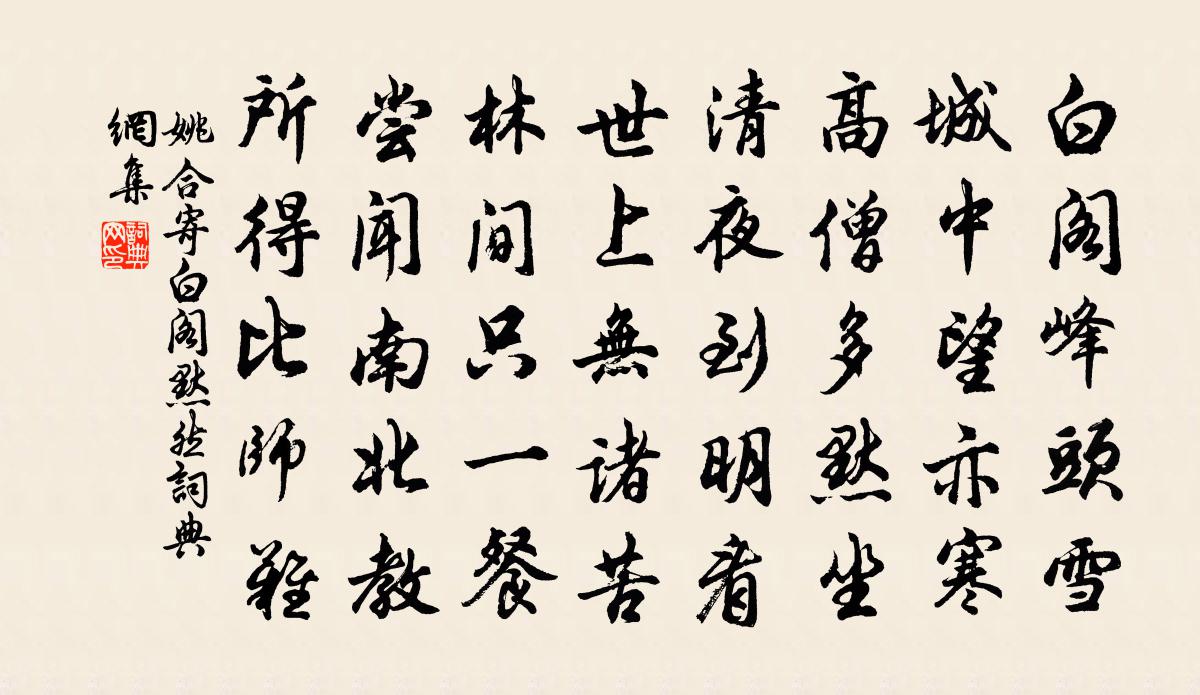 白閣峰頭雪
城中望亦寒
高僧多默坐
清夜到明看
世上無諸苦
林間只一餐
嘗聞南北教
所得比師難
姚合寄白閣默然詞典
網集
詞典
网印